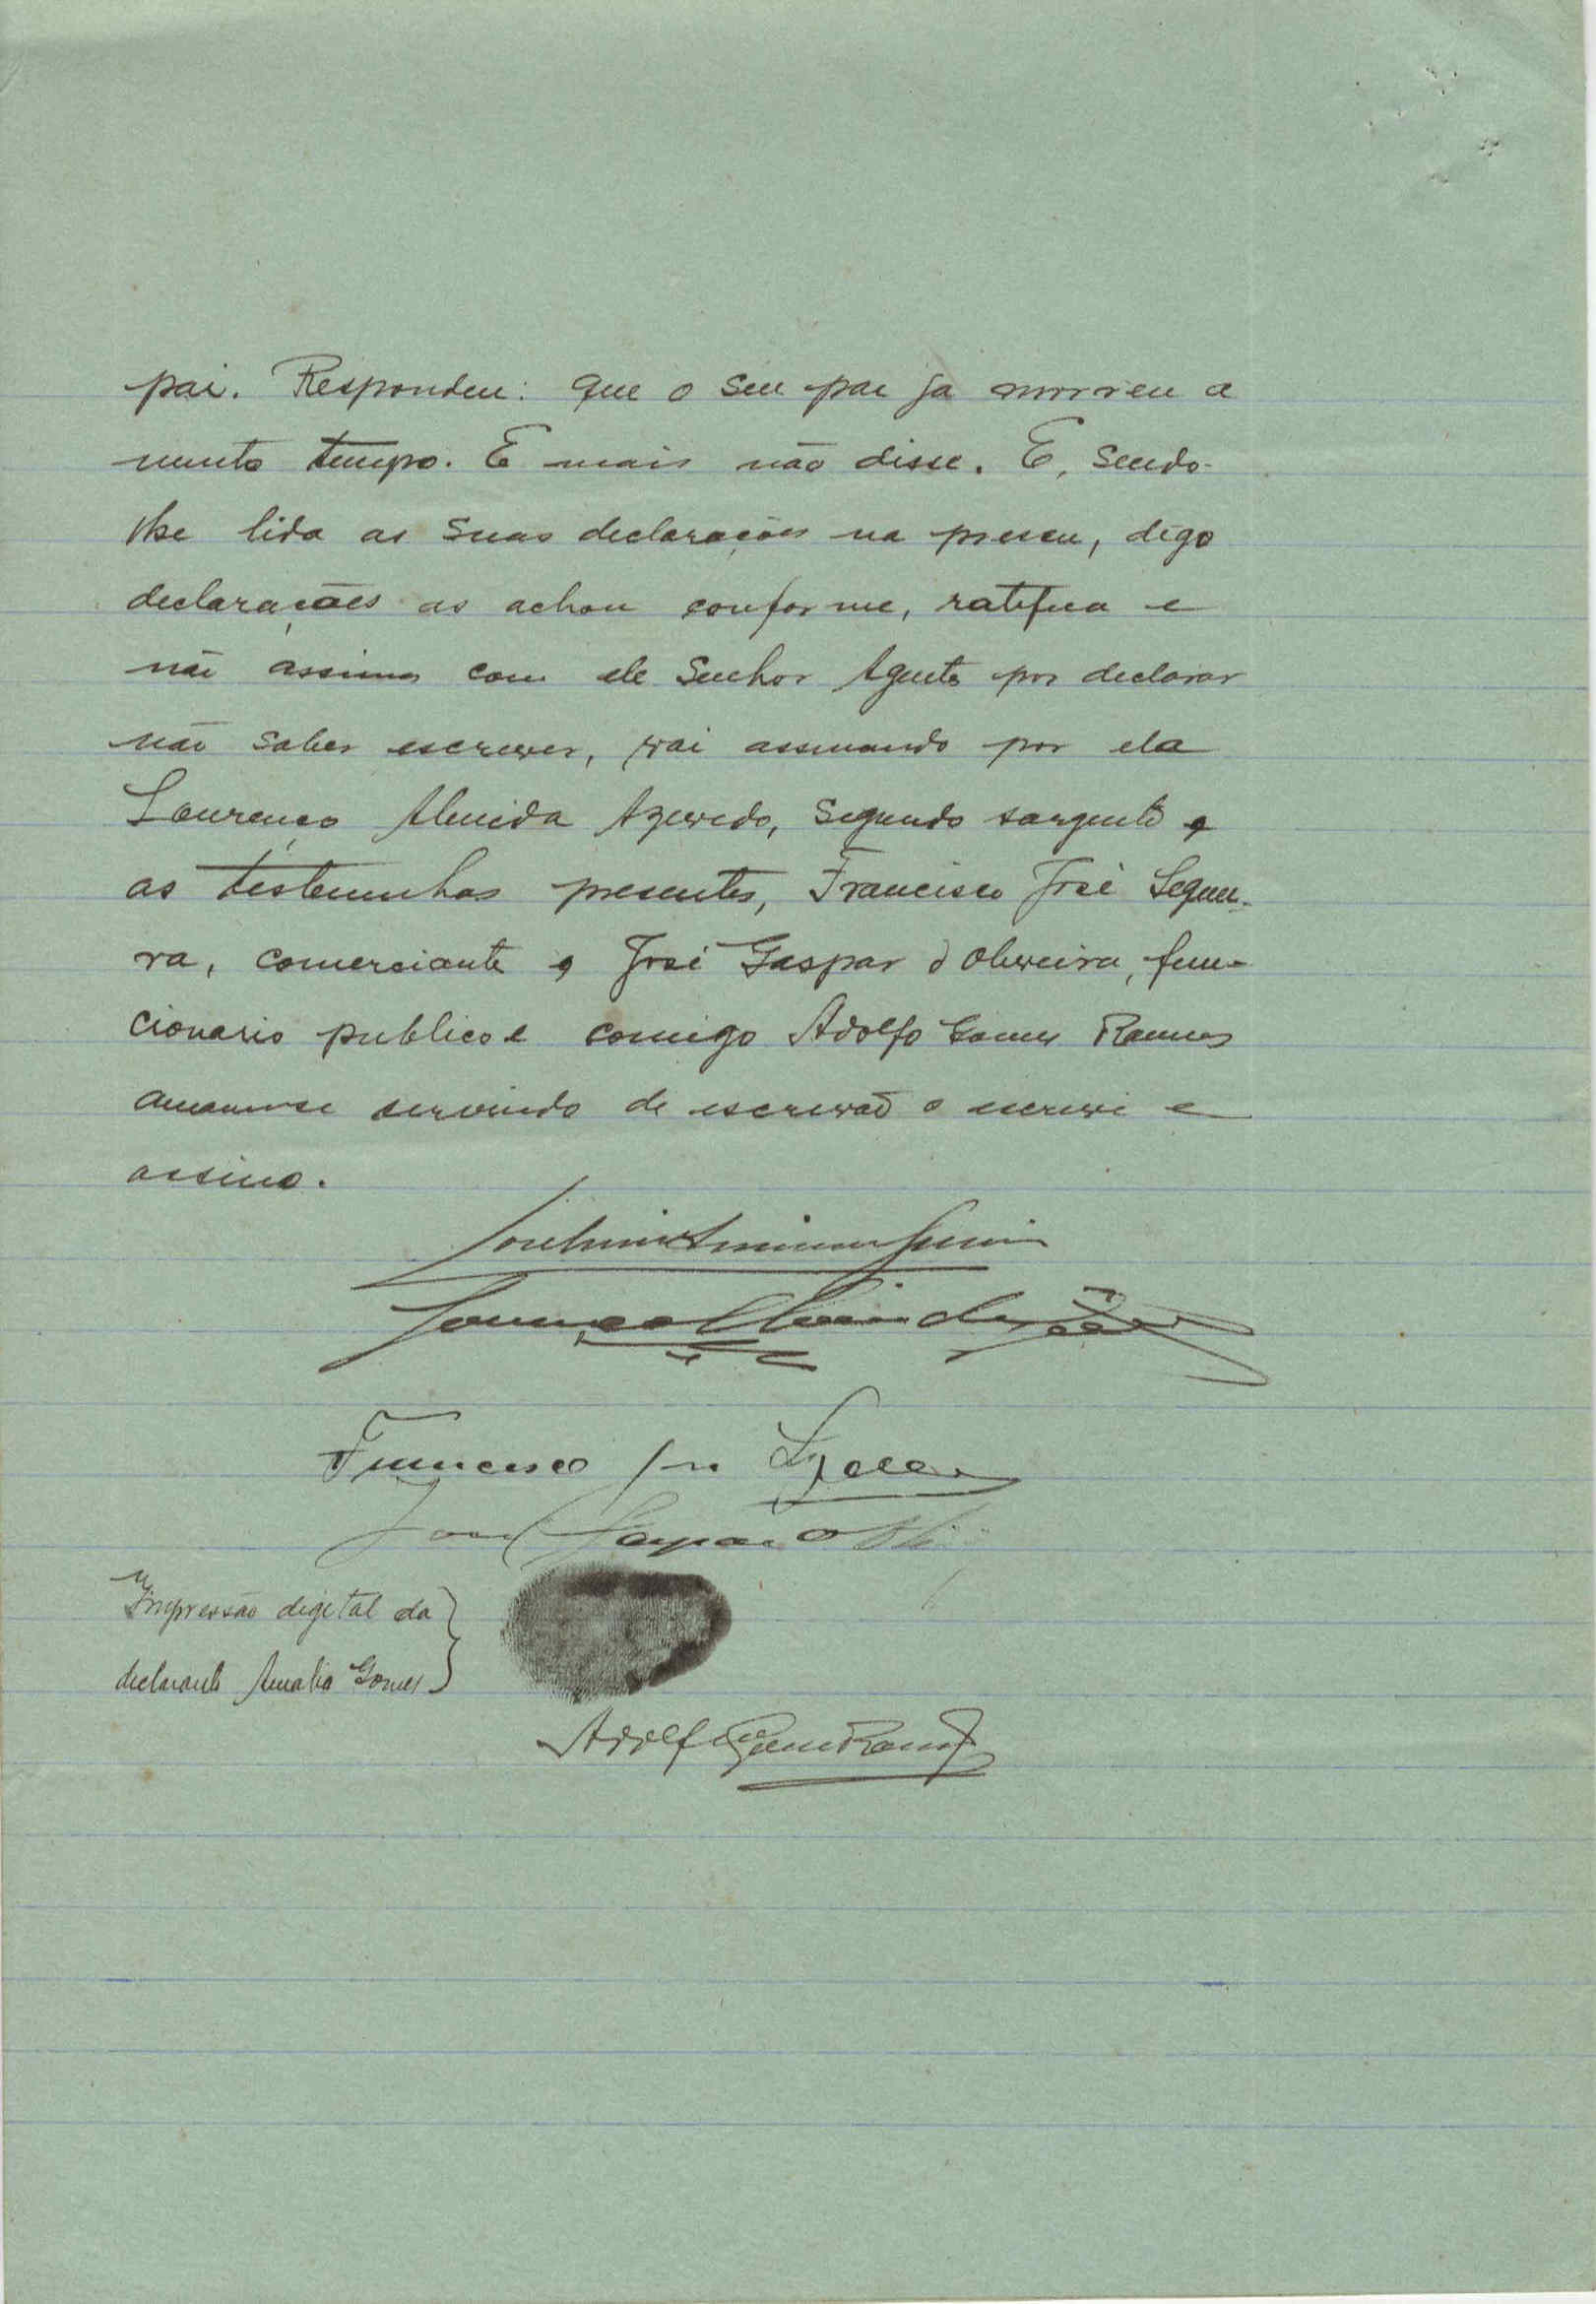 pai. Respondeu: que o seu pae ja morreu a
muito tempo. E mais não disse. E, sendo-
lhe lida as suas declarações na presen, digo
declarações as achou conforme, ratifica e
não assina com ele Senhor Agente por declarar
não saber escrever, vai assinando por ela
Lourenço Almeida Azevedo, segundo sargento e
as testemunhas presentes, Francisco José Sequei-
ra, comerciante e José Gaspar d'Oliveira, fun-
cionario publico e comigo Adolfo Gomes Ramos
amanuense servindo de escrivão o escrevi e
assino.
Lourenço Almeida
Francisco José Sequeira
José Gaspar d'Oliveira
Impressão digital da
declarante Amalia Gomes
Adolfo Gomes Ramos